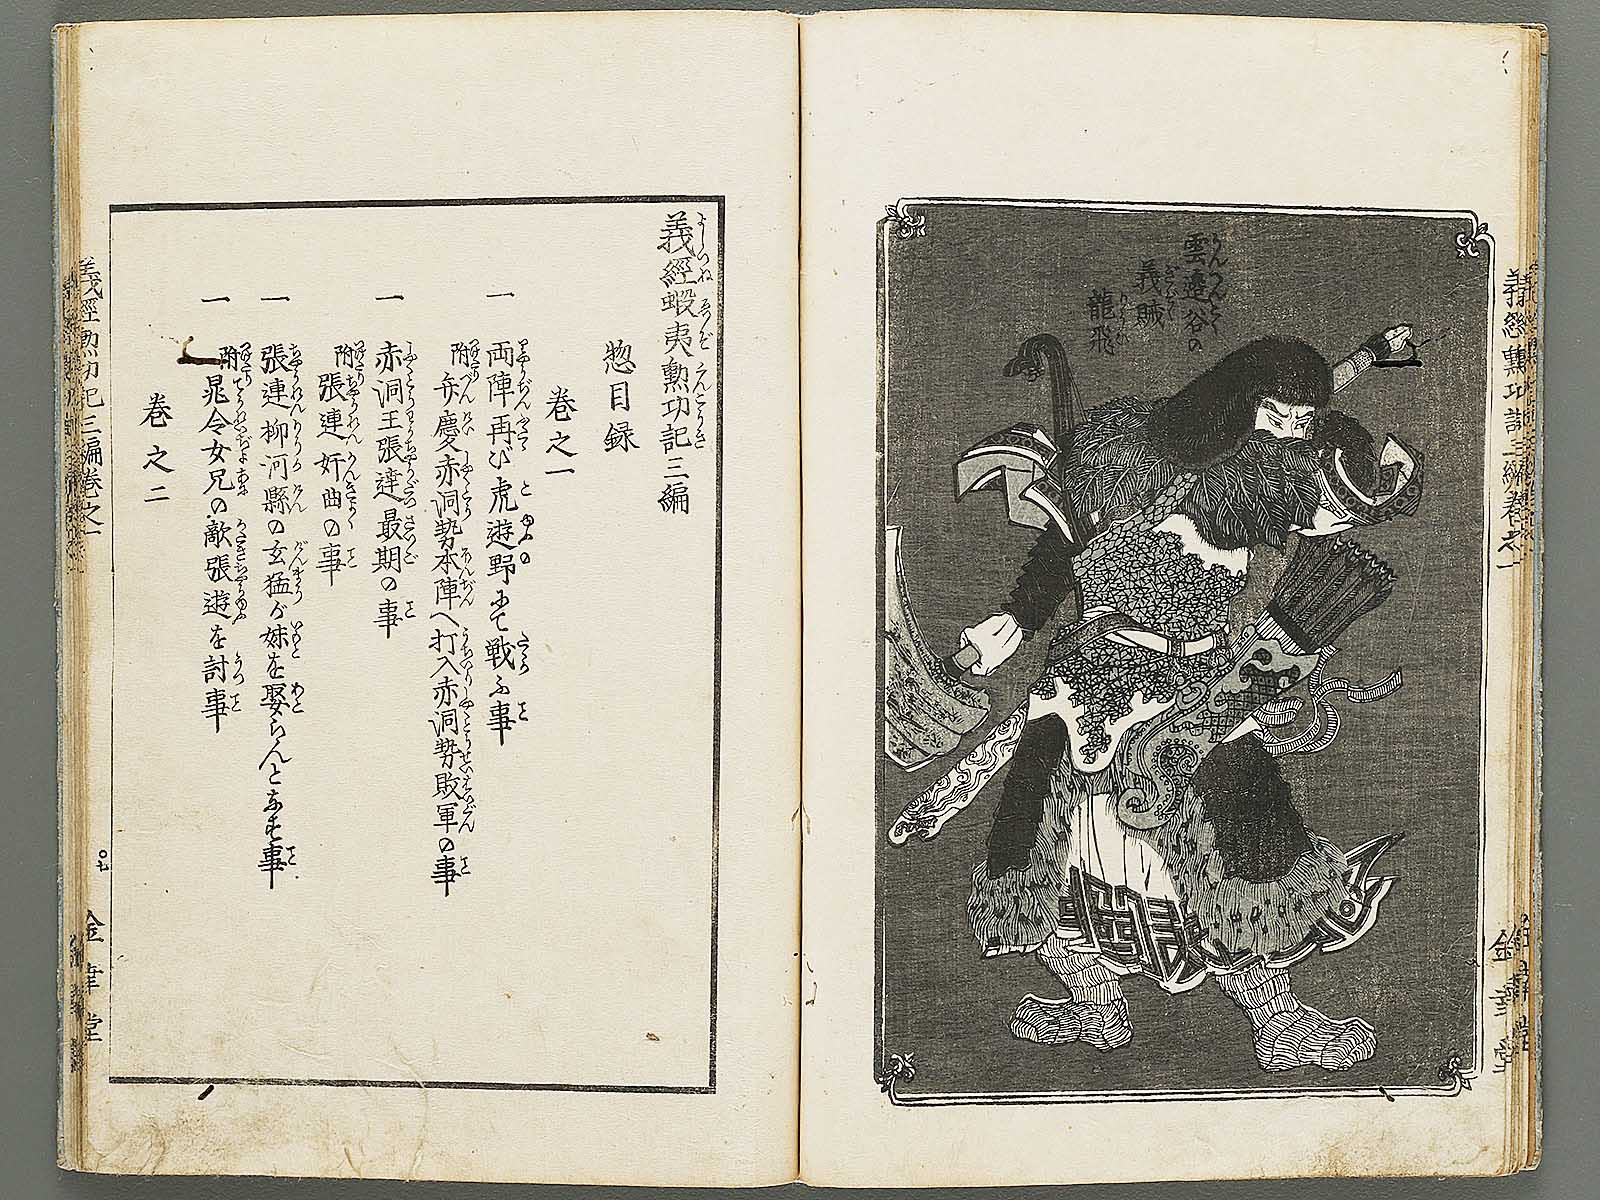 雲遼谷の
義賊
龍飛
義經蝦夷勲功記三編
惣目録
巻之一
一 両陣再び虎遊野にて戦ふ事
附 弁慶赤洞勢本陣へ打入赤洞勢敗軍の事
一 赤洞王張達最期の事
附 張連奸曲の事
一 張連柳河縣の玄猛が妹を娶らんとなす事
一 附 晁令女兄の敵張遊を討事
巻之二
義經勲功記三編巻之一
〇七
金幸堂